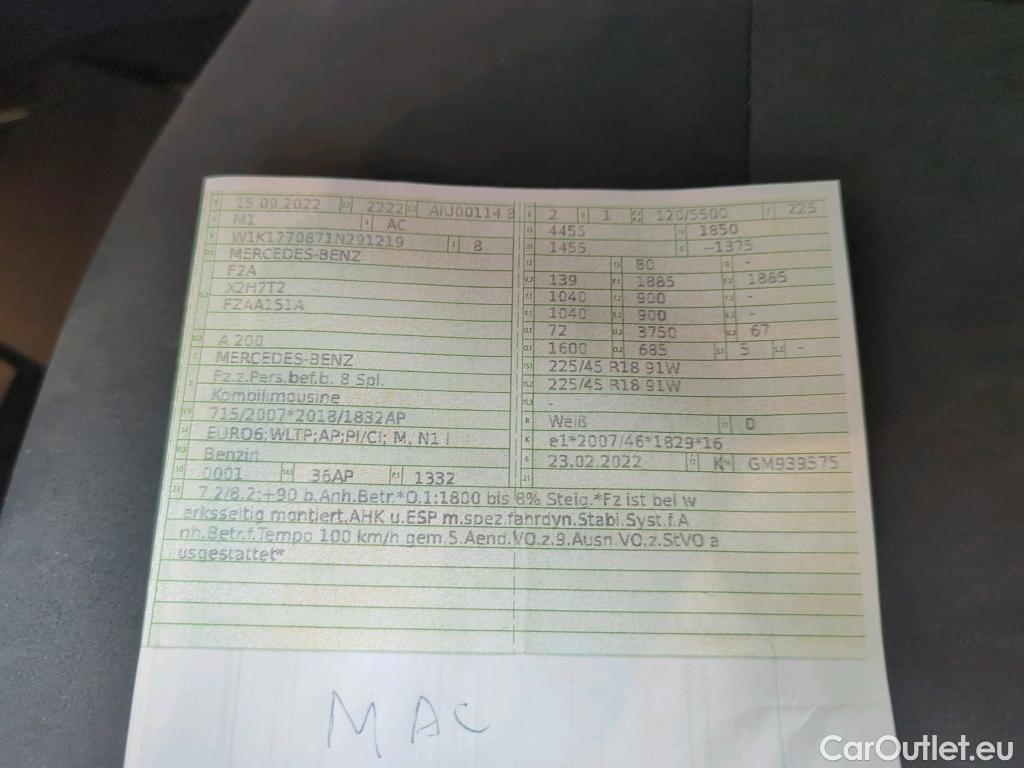 B 15.09.2022 2.1 2222 2.2 AIU00114 8
J M1 4 AC
E W1K1770871N291219 3 8
D.1 MERCEDES-BENZ
F2A
D.2 X2H7T2
FZAA151A
D.3 A 200
2 MERCEDES-BENZ
5 Fz.z.Pers.bef.b. 8 Spl.
Kombilimousine
V.9 715/2007*2018/1832AP
14 EURO6;WLTP;AP;PI/CI; M, N1 I
P.3 Benzin
10 0001 14.1 36AP P.1 1332
L 2 9 1 P.2 P.4 120/5500 T 225
18 4455 19 1850
20 1455 G -1375
12 13 80 Q -
V.7 139 F.1 1885 F.2 1885
7.1 1040 7.2 900 7.3 -
8.1 1040 8.2 900 8.3 -
U.1 72 U.2 3750 U.3 67
O.1 1600 O.2 685 S.1 5 S.2 -
15.1 225/45 R18 91W
15.2 225/45 R18 91W
15.3 -
R Weiß 11 0
K e1*2007/46*1829*16
6 23.02.2022 17 K 16 GM939575
21
22 7.2/8.2:+90 b.Anh.Betr.*O.1:1800 bis 8% Steig.*Fz ist bei w
erksseitig montiert.AHK u.ESP m.spez.fahrdyn.Stabi.Syst.f.A
nh.Betr.f.Tempo 100 km/h gem.5.Aend.VO.z.9.Ausn.VO.z.StVO a
usgestattet*
MAC
CarOutlet.eu